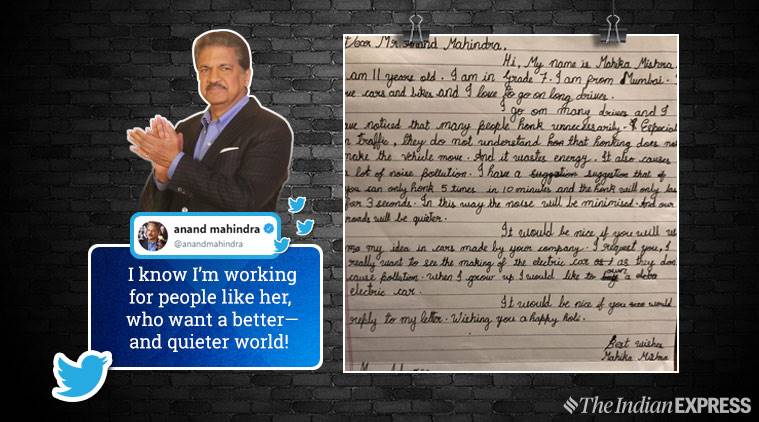 anand mahindra
@anandmahindra
I know I'm working
for people like her,
who want a better—
and quieter world!
Mr. Anand Mahindra,
Hi, My name is Mahika Mishra.
am 11 years old. I am in Grade 7. I am from Mumbai.
cars and bikes and I love to go on long drives.
I go on many drives and I
noticed that many people honk unnecessarily.
traffic, they do not understand that honking does not
make the vehicle move. And it wastes energy. It also causes
lot of noise pollution. I have a suggestion that
you can only honk 5 times in 10 minutes and the honk will only
for 3 seconds. In this way the noise will be minimised. And our
roads will be quieter.
It would be nice if you will
my idea in cars made by your company. I request you, I
really want to see the making of the electric car as they don
cause pollution. When I grow up I would like to own a
electric car.
It would be nice if you would
reply to my letter. Wishing you a happy holi.
Best wishes
Mahika Mishra
The Indian EXPRESS